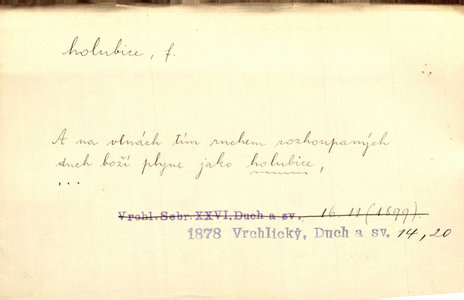 holubice, f.
A na vlnách tím ruchem rozhoupaných
duch boží plyne jako holubice,
...
Vrchl. Sebr. XXVI. Duch a sv. 16. 11 (1899)
1878 Vrchlický, Duch a sv. 14, 20